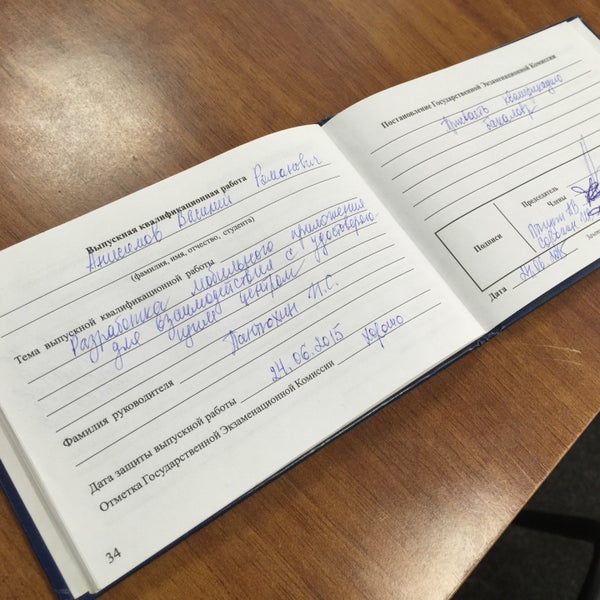 Выпускная квалификационная работа
Анисимов Василий Романович
(фамилия, имя, отчество, студента)
Тема выпускной квалификационной работы
Разработка мобильного приложения
для взаимодействия с удостоверяю-
щим центром
Фамилия руководителя Пантюхин И.С.
Дата защиты выпускной работы 24.06.2015
Отметка Государственной Экзаменационной Комиссии хорошо
34
Постановление Государственной Экзаменационной Комиссии
Присвоить квалификацию
бакалавр
Подписи
Председатель
Члены
Дата